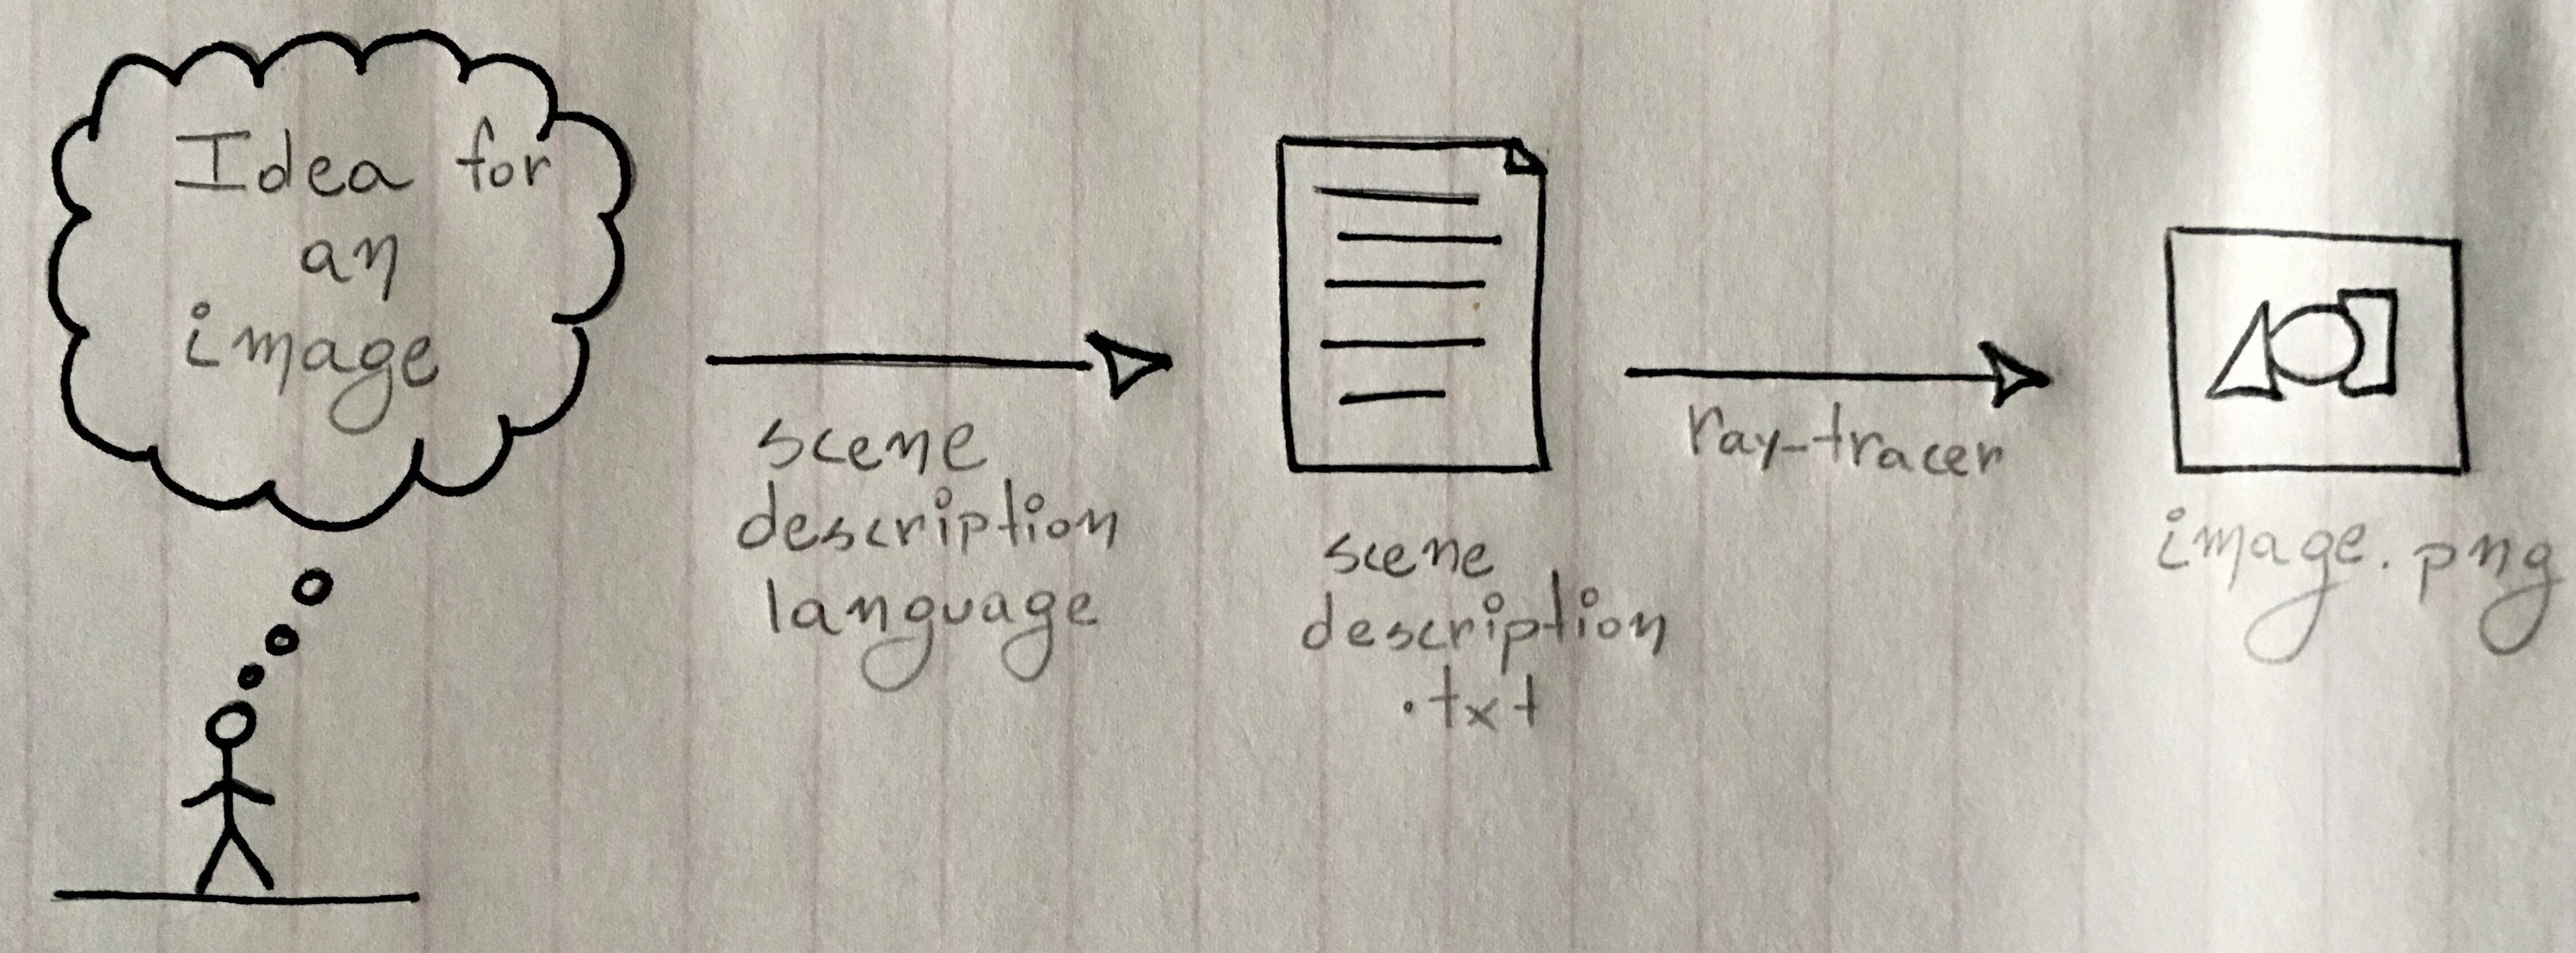 Idea for
an
image
scene
description
language
scene
description
.txt
ray-tracer
image.png